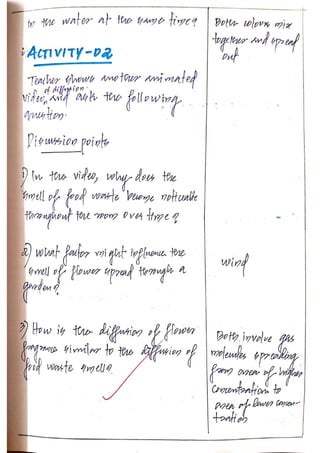 in the water at the same time?
Both colours mix
together and spread
out
ACTIVITY-02
Teacher shows another animated
video of diffusion, and ask the following
question.
Discussion points
1) In the video, why does the
smell of food waste become noticeable
throughout the room over time?
2) What factor might influence the
smell of flower spread through a
garden?
wind
3) How is the diffusion of flower
fragrance similar to the diffusion of
food waste smell?
Both involve gas
molecules spreading
from area of higher
concentration to
area of lower concen-
tration